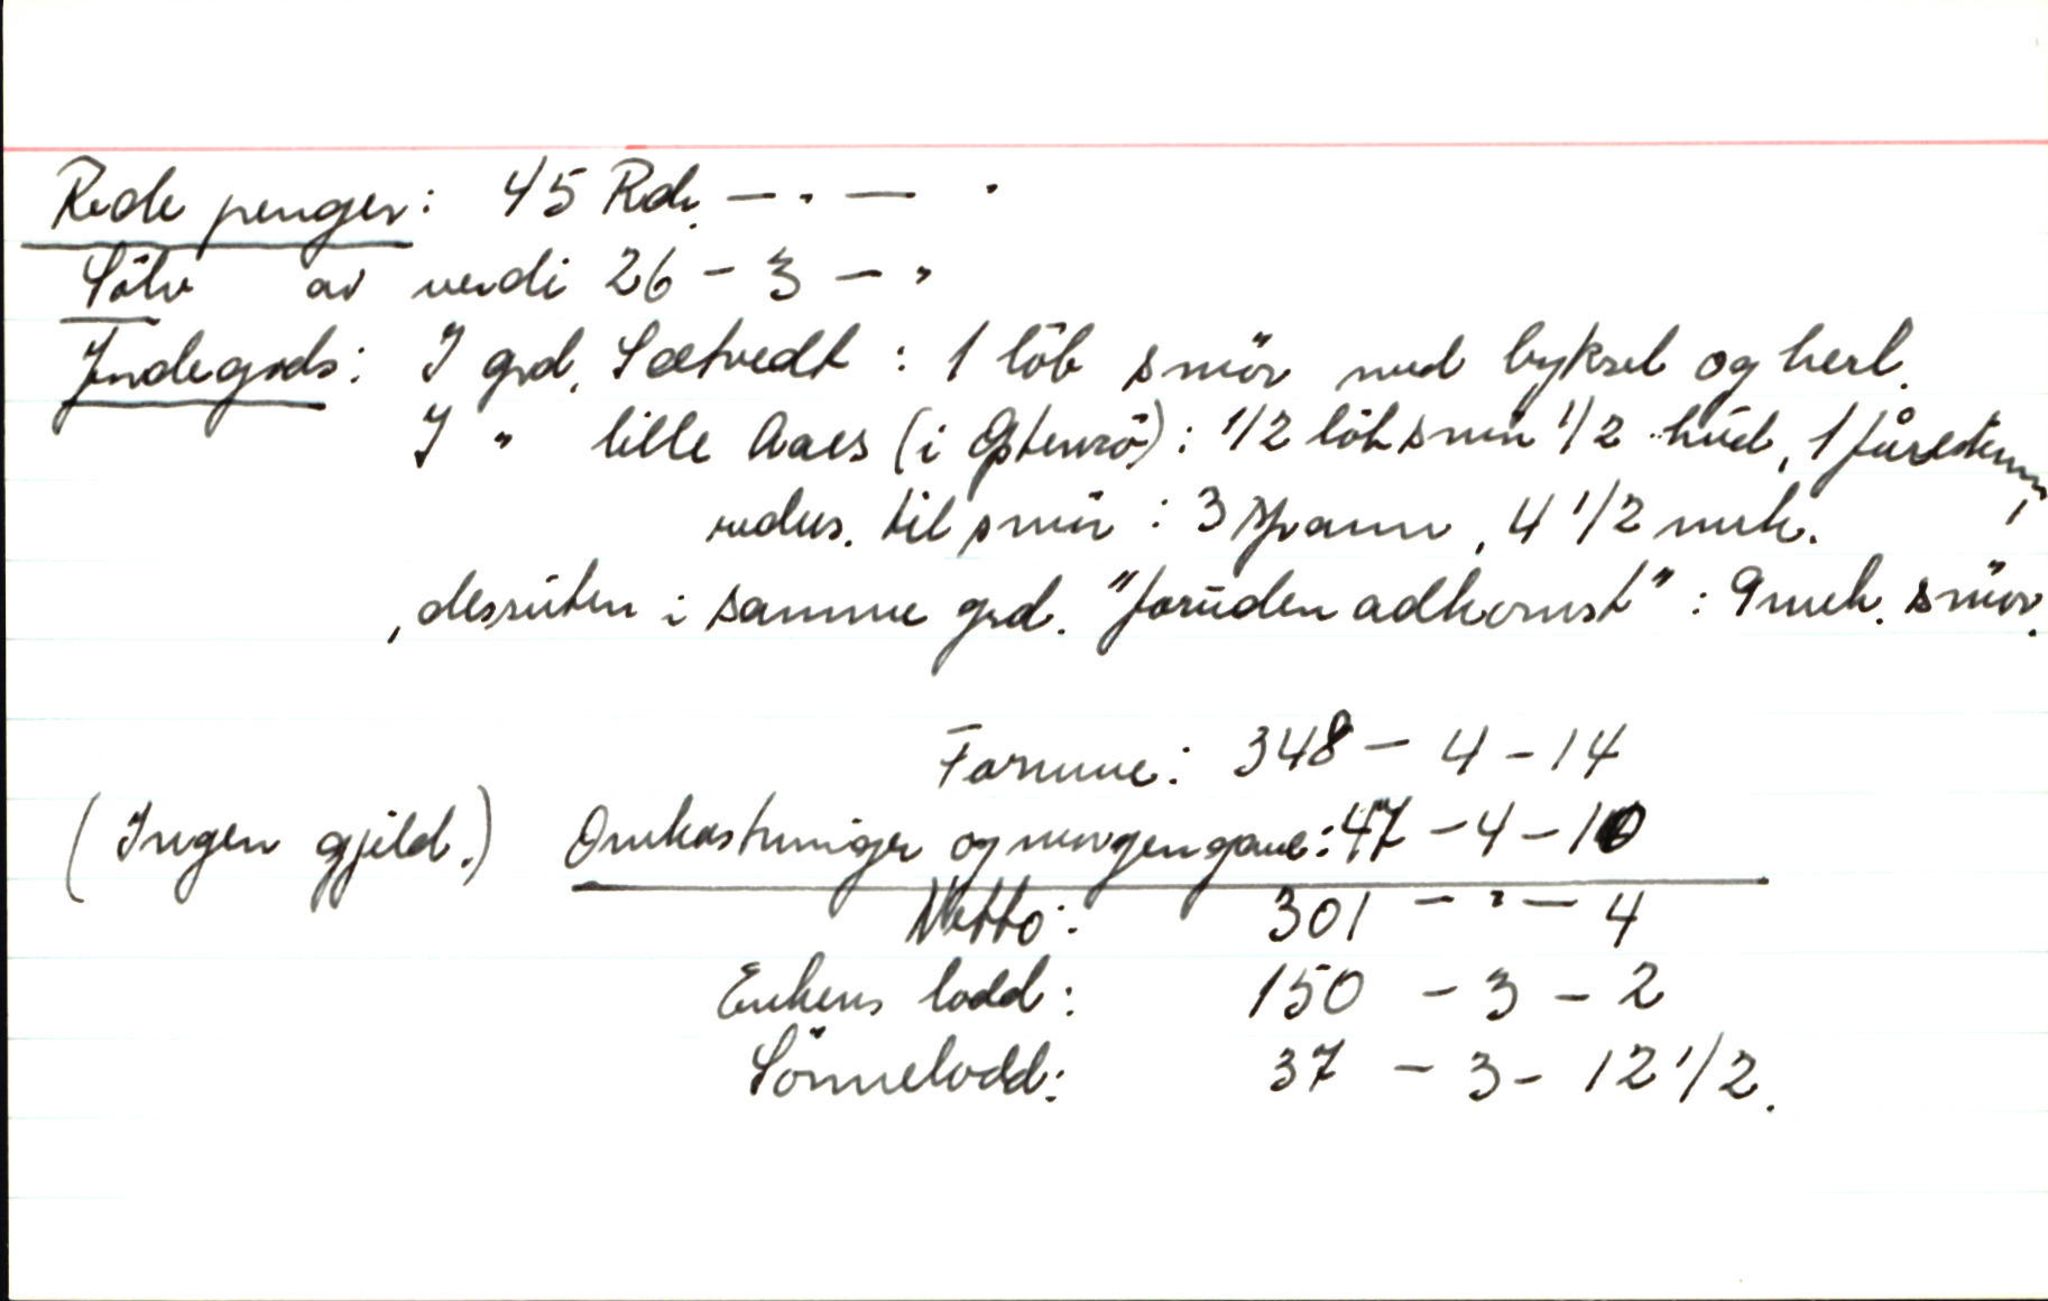 Rede penger: 45 Rdr. — . — .
Sölv av verdi 26 - 3 - "
Jordegods: I grd. Sætvedt: 1 löb smör med byksel og herl.
I " lille Aaes (i Østensö): 1/2 löb smör 1/2 hud, 1
redus. til smör: 3 spann, 4 1/2 mrk.
, dessuten i samme grd. "foruden adkomst": 9 mrk. smör.
Formue: 348 - 4 - 14
(Ingen gjeld.) Omkostninger og morgengave: 47 - 4 - 10
Netto: 301 - " - 4
Enkens lodd: 150 - 3 - 2
Sönnelodd: 37 - 3 - 12 1/2.